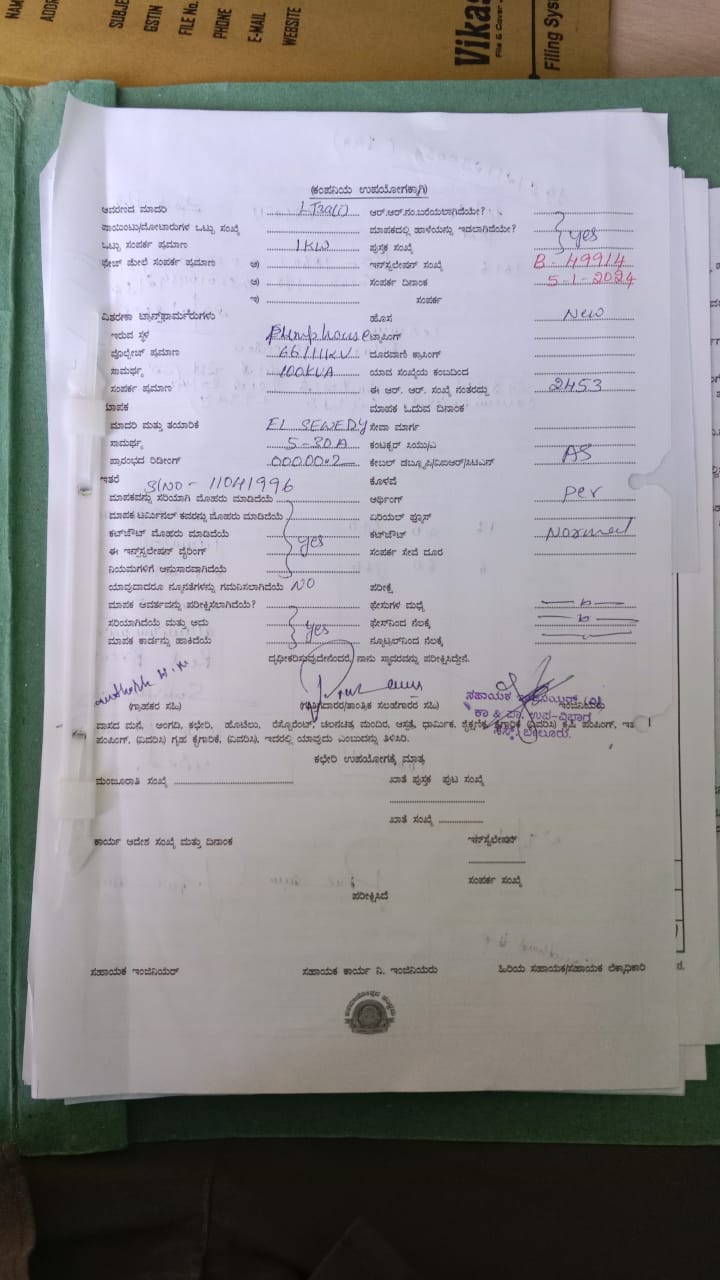 NAM
ADDR
SUBJE
GSTIN
FILE No.
PHONE
E-MAIL
WEBSITE
Vikas
File & Cover
Filing Sys
(ಕಂಪನಿಯ ಉಪಯೋಗಕ್ಕಾಗಿ)
ಆವರಣದ ಮಾದರಿ ಆರ್.ಆರ್.ನಂ.ಬರೆಯಲಾಗಿದೆಯೇ?
ಪಾಯಿಂಟು/ಮೋಟಾರುಗಳ ಒಟ್ಟು ಸಂಖ್ಯೆ ಮಾಪಕದಲ್ಲಿ ಹಾಳೆಯನ್ನು ಇಡಲಾಗಿದೆಯೇ? yes
ಒಟ್ಟು ಸಂಪರ್ಕ ಪ್ರಮಾಣ 1KW ಪುಸ್ತಕ ಸಂಖ್ಯೆ
ಫೇಜ್ ಮೇಲೆ ಸಂಪರ್ಕ ಪ್ರಮಾಣ ಅ) ಇನ್‌ಸ್ಟಲೇಷನ್ ಸಂಖ್ಯೆ B-49914
ಆ) ಸಂಪರ್ಕ ದಿನಾಂಕ 5-1-2024
ಇ) ಸಂಪರ್ಕ
ವಿತರಣಾ ಟ್ರಾನ್ಸ್‌ಫಾರ್ಮರುಗಳು ಹೊಸ New
ಇರುವ ಸ್ಥಳ Pump house ಟ್ಯಾಪಿಂಗ್
ವೊಲ್ಟೇಜ್ ಪ್ರಮಾಣ 66/11KV ದೂರವಾಣಿ ಕ್ರಾಸಿಂಗ್
ಸಾಮರ್ಥ್ಯ 100KVA ಯಾವ ಸಂಖ್ಯೆಯ ಕಂಬದಿಂದ
ಸಂಪರ್ಕ ಪ್ರಮಾಣ ಈ ಆರ್. ಆರ್. ಸಂಖ್ಯೆ ನಂತರದ್ದು 2453
ಮಾಪಕ ಮಾಪಕ ಓದುವ ದಿನಾಂಕ
ಮಾದರಿ ಮತ್ತು ತಯಾರಿಕೆ EL SEWEDY ಸೇವಾ ಮಾರ್ಗ
ಸಾಮರ್ಥ್ಯ 5-30A ಕಂಟಕ್ಟರ್ ಸಿಯು/ಎ
ಪ್ರಾರಂಭದ ರಿಡೀಂಗ್ 000000.2 ಕೇಬಲ್ AS
ಇತರೆ S/NO - 11041996 ಕೊಳವೆ
ಮಾಪಕವನ್ನು ಸರಿಯಾಗಿ ಮೊಹರು ಮಾಡಿದೆಯೆ ಅರ್ಥಿಂಗ್ per
ಮಾಪಕ ಟರ್ಮಿನಲ್ ಕವರನ್ನು ಮೊಹರು ಮಾಡಿದೆಯೆ ಏರಿಯಲ್ ಫ್ಯೂಸ್
ಕಟ್‌ಔಟ್ ಮೊಹರು ಮಾಡಿದೆಯೆ yes ಕಟ್‌ಔಟ್ Normal
ಈ ಇನ್‌ಸ್ಟಲೇಷನ್ ವೈರಿಂಗ್ ಸಂಪರ್ಕ ಸೇವೆ ದೂರ
ನಿಯಮಗಳಿಗೆ ಅನುಸಾರವಾಗಿದೆಯೆ
ಯಾವುದಾದರೂ ನ್ಯೂನತೆಗಳನ್ನು ಗಮನಿಸಲಾಗಿದೆಯೆ NO ಪರೀಕ್ಷೆ
ಮಾಪಕ ಆವರ್ತವನ್ನು ಪರೀಕ್ಷಿಸಲಾಗಿದೆಯೆ? ಫೇಸುಗಳ ಮಧ್ಯೆ
ಸರಿಯಾಗಿದೆಯೆ ಮತ್ತು ಅದು yes ಫೇಸ್‌ನಿಂದ ನೆಲಕ್ಕೆ
ಮಾಪಕ ಕಾರ್ಡನ್ನು ಹಾಕಿದೆಯೆ ನ್ಯೂಟ್ರಲ್‌ನಿಂದ ನೆಲಕ್ಕೆ
ದೃಢೀಕರಿಸುವುದೇನೆಂದರೆ, ನಾನು ಸ್ಥಾವರವನ್ನು ಪರೀಕ್ಷಿಸಿದ್ದೇನೆ.
(ಗ್ರಾಹಕರ ಸಹಿ) (ಗುತ್ತಿಗೆದಾರರ/ತಾಂತ್ರಿಕ ಸಲಹೆಗಾರರ ಸಹಿ) ಸಹಾಯಕ ಇಂಜಿನಿಯರು
ಕಾ & ಪಾ. ಉಪ-ವಿಭಾಗ
ಬೇಲೂರು.
ವಾಸದ ಮನೆ, ಅಂಗಡಿ, ಕಛೇರಿ, ಹೊಟೆಲು, ರೆಸ್ಟೊರೆಂಟ್, ಚಲನಚಿತ್ರ ಮಂದಿರ, ಆಸ್ಪತ್ರೆ, ಧಾರ್ಮಿಕ, ಶೈಕ್ಷಣಿಕ, ಕೈಗಾರಿಕೆ (ವಿವರಿಸಿ) ಕೃಷಿ ಪಂಪಿಂಗ್, ಇತರ
ಪಂಪಿಂಗ್, (ವಿವರಿಸಿ) ಗೃಹ ಕೈಗಾರಿಕೆ, (ವಿವರಿಸಿ), ಇದರಲ್ಲಿ ಯಾವುದು ಎಂಬುದನ್ನು ತಿಳಿಸಿರಿ.
ಕಛೇರಿ ಉಪಯೋಗಕ್ಕೆ ಮಾತ್ರ
ಮಂಜೂರಾತಿ ಸಂಖ್ಯೆ ಖಾತೆ ಪುಸ್ತಕ ಪುಟ ಸಂಖ್ಯೆ
ಖಾತೆ ಸಂಖ್ಯೆ
ಕಾರ್ಯ ಆದೇಶ ಸಂಖ್ಯೆ ಮತ್ತು ದಿನಾಂಕ ಇನ್‌ಸ್ಟಲೇಷನ್
ಸಂಪರ್ಕ ಸಂಖ್ಯೆ
ಪರೀಕ್ಷಿಸಿದೆ
ಸಹಾಯಕ ಇಂಜಿನಿಯರ್ ಸಹಾಯಕ ಕಾರ್ಯ ನಿ. ಇಂಜಿನಿಯರು ಹಿರಿಯ ಸಹಾಯಕ/ಸಹಾಯಕ ಲೆಕ್ಕಾಧಿಕಾರಿ